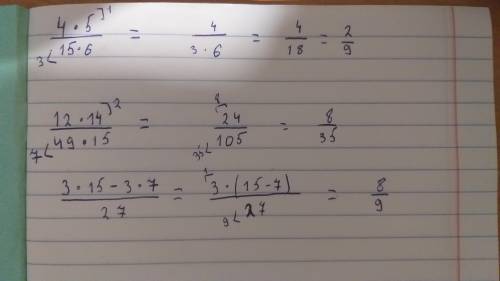 4 · 5 ⌉1 / 3⟨ 15 · 6 = 4 / 3 · 6 = 4 / 18 = 2 / 9
12 · 14 ⌉2 / 7⟨ 49 · 15 = 8⌈ 24 / 35⟨ 105 = 8 / 35
3 · 15 - 3 · 7 / 27 = 1⌈ 3 · (15 - 7) / 9⟨ 27 = 8 / 9